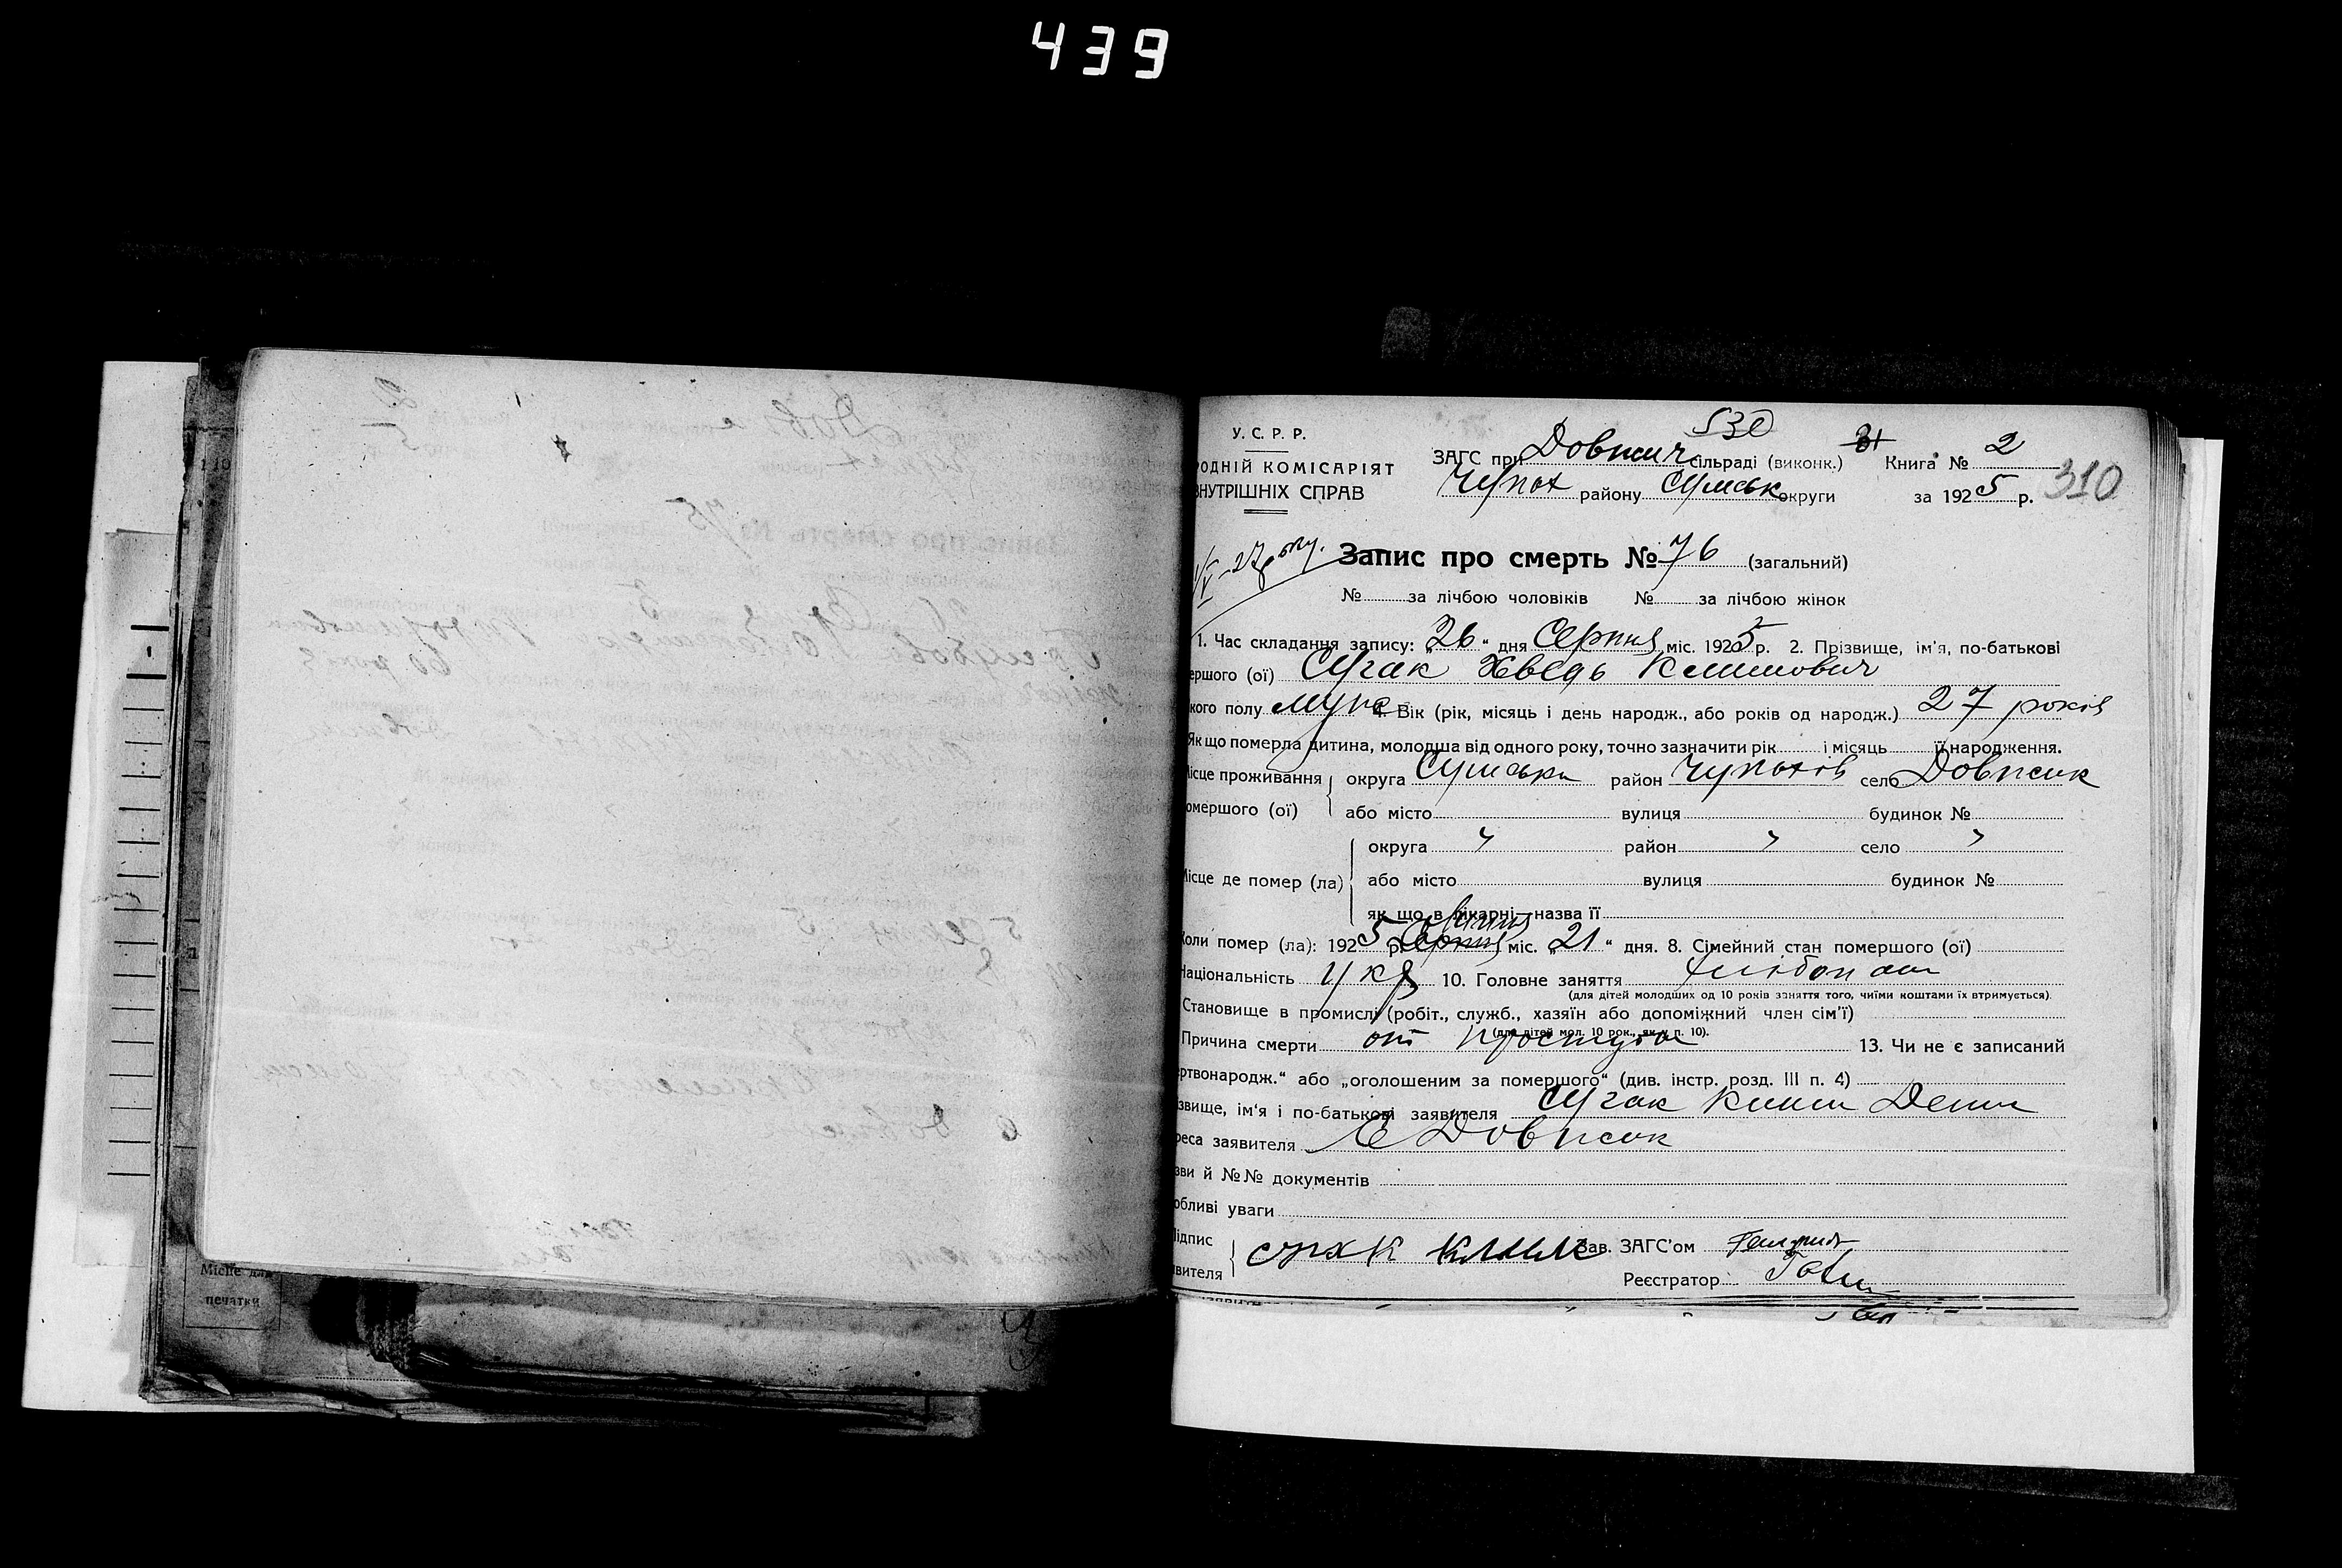 439
У. С. Р. Р.
530
РОДНІЙ КОМІСАРІЯТ
ВНУТРІШНІХ СПРАВ
ЗАГС при Довжич сільраді (виконк.) Книга № 2
Чупах району Сумськ округи за 1925 р. 310
Запис про смерть № 76 (загальний)
№ за лічбою чоловіків № за лічбою жінок
1. Час складання запису: „26“ дня Серпня міс. 1925 р. 2. Прізвище, ім'я, по-батькові
ершого (ої) Сугак Хведь Климович
кого полу муж 4. Вік (рік, місяць і день народж., або років од народж.) 27 років
Якщо померла дитина, молодша від одного року, точно зазначити рік і місяць її народження.
ісце проживання округа Сумська район Чупахів село Довжик
омершого (ої) або місто вулиця будинок №
округа " район " село "
ісце де помер (ла) або місто вулиця будинок №
як що в лікарні—назва її
Липня
оли помер (ла): 1925 р. Серпня міс. „21“ дня. 8. Сімейний стан помершого (ої)
аціональність укр 10. Головне заняття хлібопаш
(для дітей молодших од 10 років заняття того, чиїми коштами їх втримується).
Становище в промислі (робіт., служб., хазяїн або допоміжний член сім'ї)
(для дітей мол. 10 рок., як у п. 10).
Причина смерти от простуди 13. Чи не є записаний
ертвонародж.“ або „оголошеним за помершого“ (див. інстр. розд. III п. 4)
звище, ім'я і по-батькові заявителя Сугак Клим Деми
реса заявителя С Довжик
зви й №№ документів
обливі уваги
ідпис
явителя сугак клим Зав. ЗАГС'ом
Реєстратор
Місце для
печатки